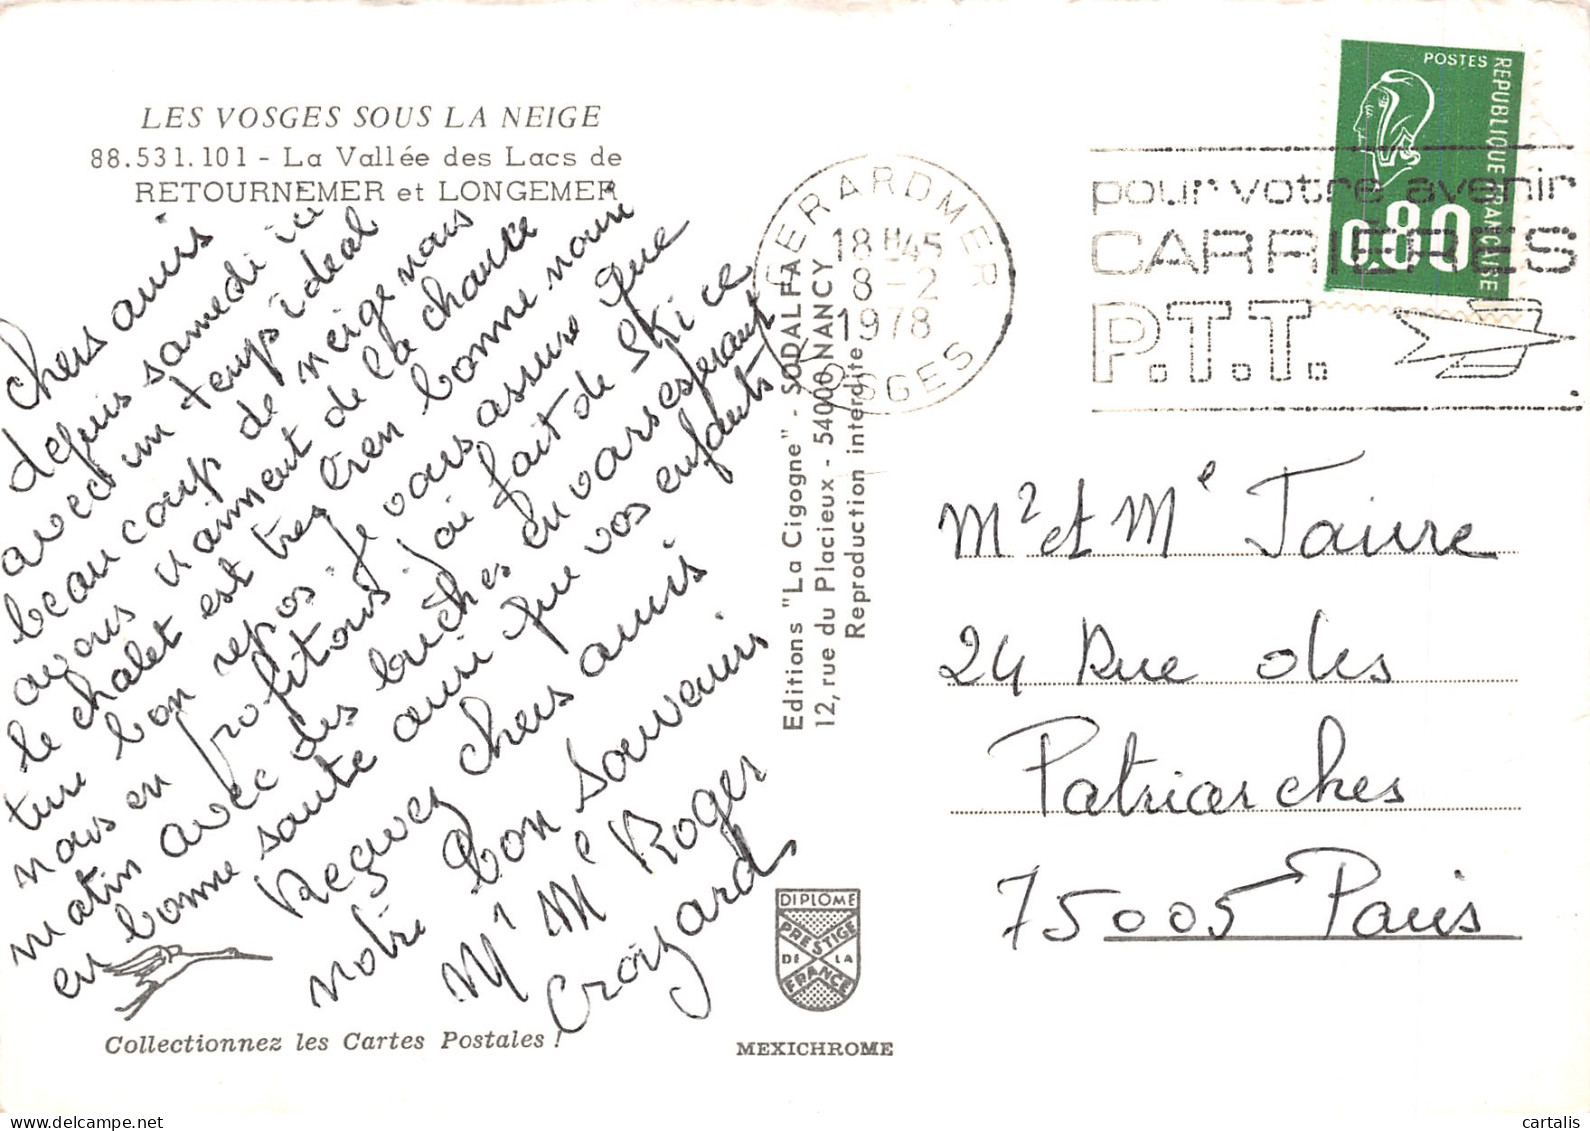 LES VOSGES SOUS LA NEIGE
88.531.101 - La Vallée des Lacs de
RETOURNEMER et LONGEMER
Chers amis
depuis samedi ici
avec un temps ideal
beaucoup de neige nous
avons vraiment de la chance
le chalet est tres bien bonne nouri
ture bon repos. Je vous assure que
nous en profitons. j'ai fait de Ski ce
matin avec des louches en vous esperant
en bonne santé ainsi que vos enfants
Recevez chers amis
notre bon souvenir
Mr Me Roger
Croizard
Collectionnez les Cartes Postales !
Editions "La Cigogne" - SODALFA
12, rue du Placieux - 54000 NANCY
Reproduction interdite
DIPLOME
PRESTIGE
DE LA
FRANCE
MEXICHROME
GERARDMER
18 H45
8 - 2
1978
VOSGES
pour votre avenir
CARRIERES
P.T.T.
POSTES
REPUBLIQUE FRANCAISE
0.80
Mr et Me Faivre
24 Rue des
Patriarches
75005 Paris
cartalis